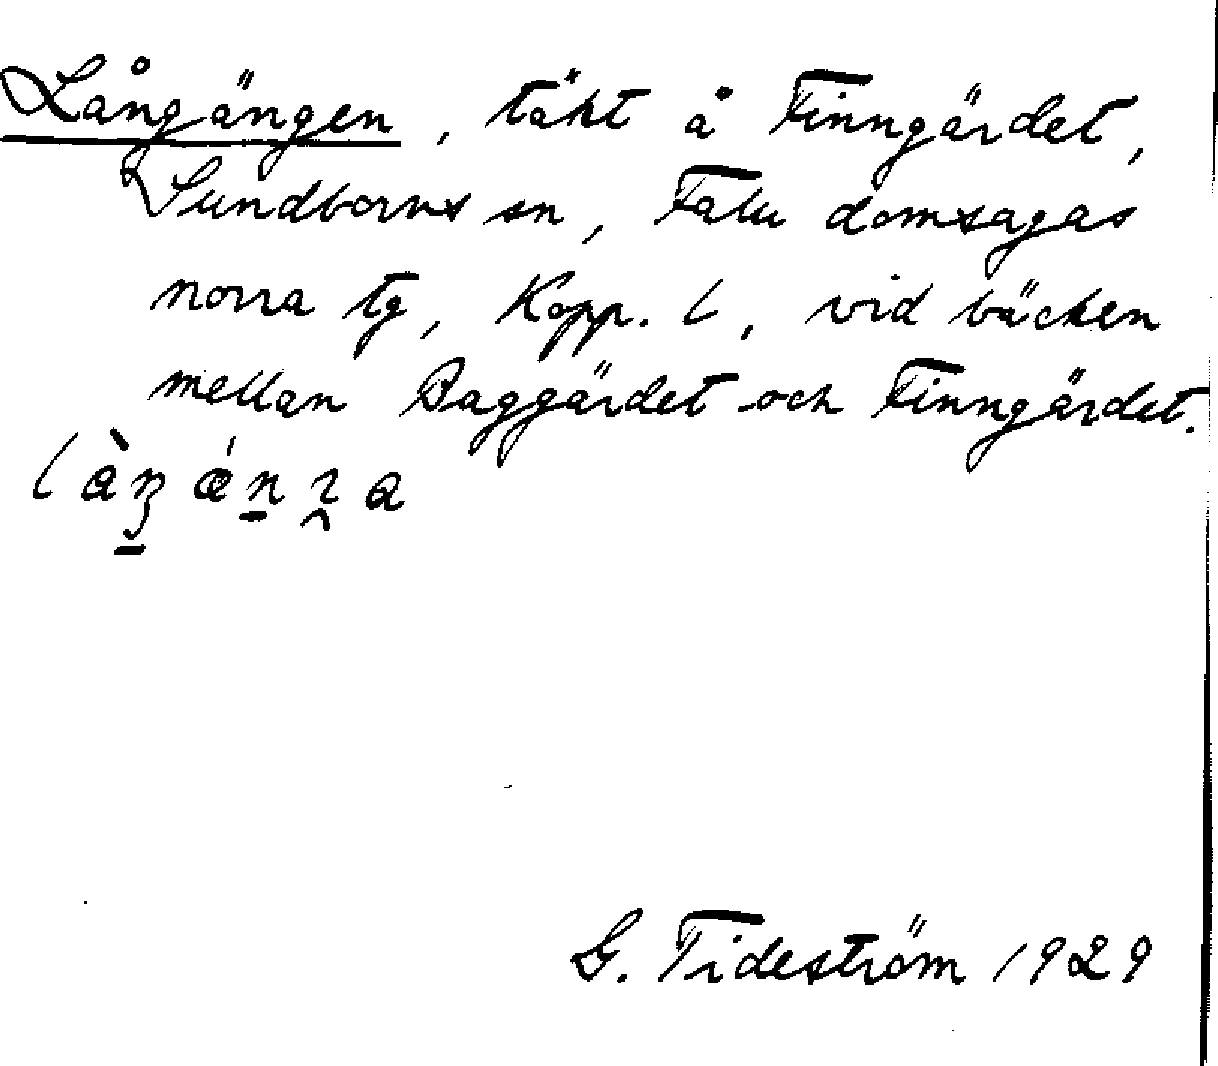 Långängen, täkt å Finngärdet,
Sundborns sn, Falu domsagas
norra tg, Kopp. l, vid bäcken
mellan Baggärdet och Finngärdet.
G. Tideström 1929